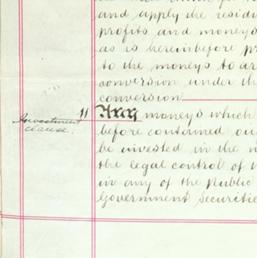 and apply the resid
profits and moneys
as is hereinbefore pr
to the moneys to ar
conversion under th
conversion
Investment
clause.
11 Any moneys which
before contained ou
be invested in the n
the legal control of
in any of the Public
Government Securitie